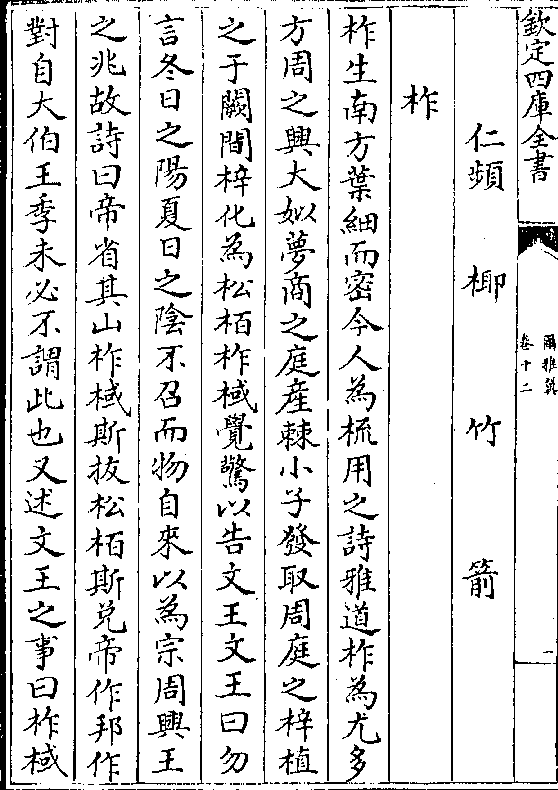 欽定四庫全書
爾雅翼
卷十二
一
仁頻　椰　竹　箭
柞
柞生南方葉細而密今人為梳用之詩雅道柞為尤多
方周之興大姒夢商之庭産棘小子發取周庭之梓植
之于闕間梓化為松栢柞棫覺驚以告文王文王曰勿
言冬日之陽夏日之隂不召而物自來以為宗周興王
之兆故詩曰帝省其山柞棫斯拔松栢斯兌帝作邦作
對自大伯王季未必不謂此也又述文王之事曰柞棫